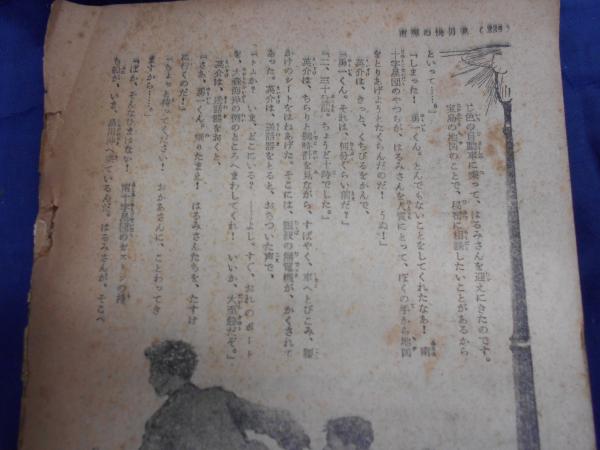 (228)
じ色の自動車に乗って、はるみさんを迎えにきたのです。
宝島の地図のことで、秘密に相談したいことがあるから
といって……。」
「しまった! 勇一くん。とんでもないことをしてくれたなあ! 南
十字星団のやつが、はるみさんを人質にとって、ぼくの手から地図
をとりあげようとたくらんだのだ! うぬ!」
英介は、きっと、くちびるをかんで、
「勇一くん。それは、何分ぐらい前だ?」
「二、三十分前。ちょうど十時でした。」
英介は、ちらりと腕時計を見ながら、すばやく、車へとびこみ、腰
かけのシートをはねあげた。そこには、無電機が、かくされて
あった。英介は、送話器をとると、おちついた声で、
「トムか? いま、どこにいる? ……よし。すぐ、おれのボート
を、大森海岸の例のところへまわしてくれ! いいか、大至急だぞ。」
英介は、送話器をおくと、
「さあ、勇一くん。乗りたまえ! はるみさんたちを、たすけ
に行くのだ!」
「ちょっと待ってください! おかあさんに、ことわってき
ますから……。」
「ばか、そんなひまはない! 南十字星団の
も船が、いま、品川沖へ来ているんだ。はるみさんが、そこへ